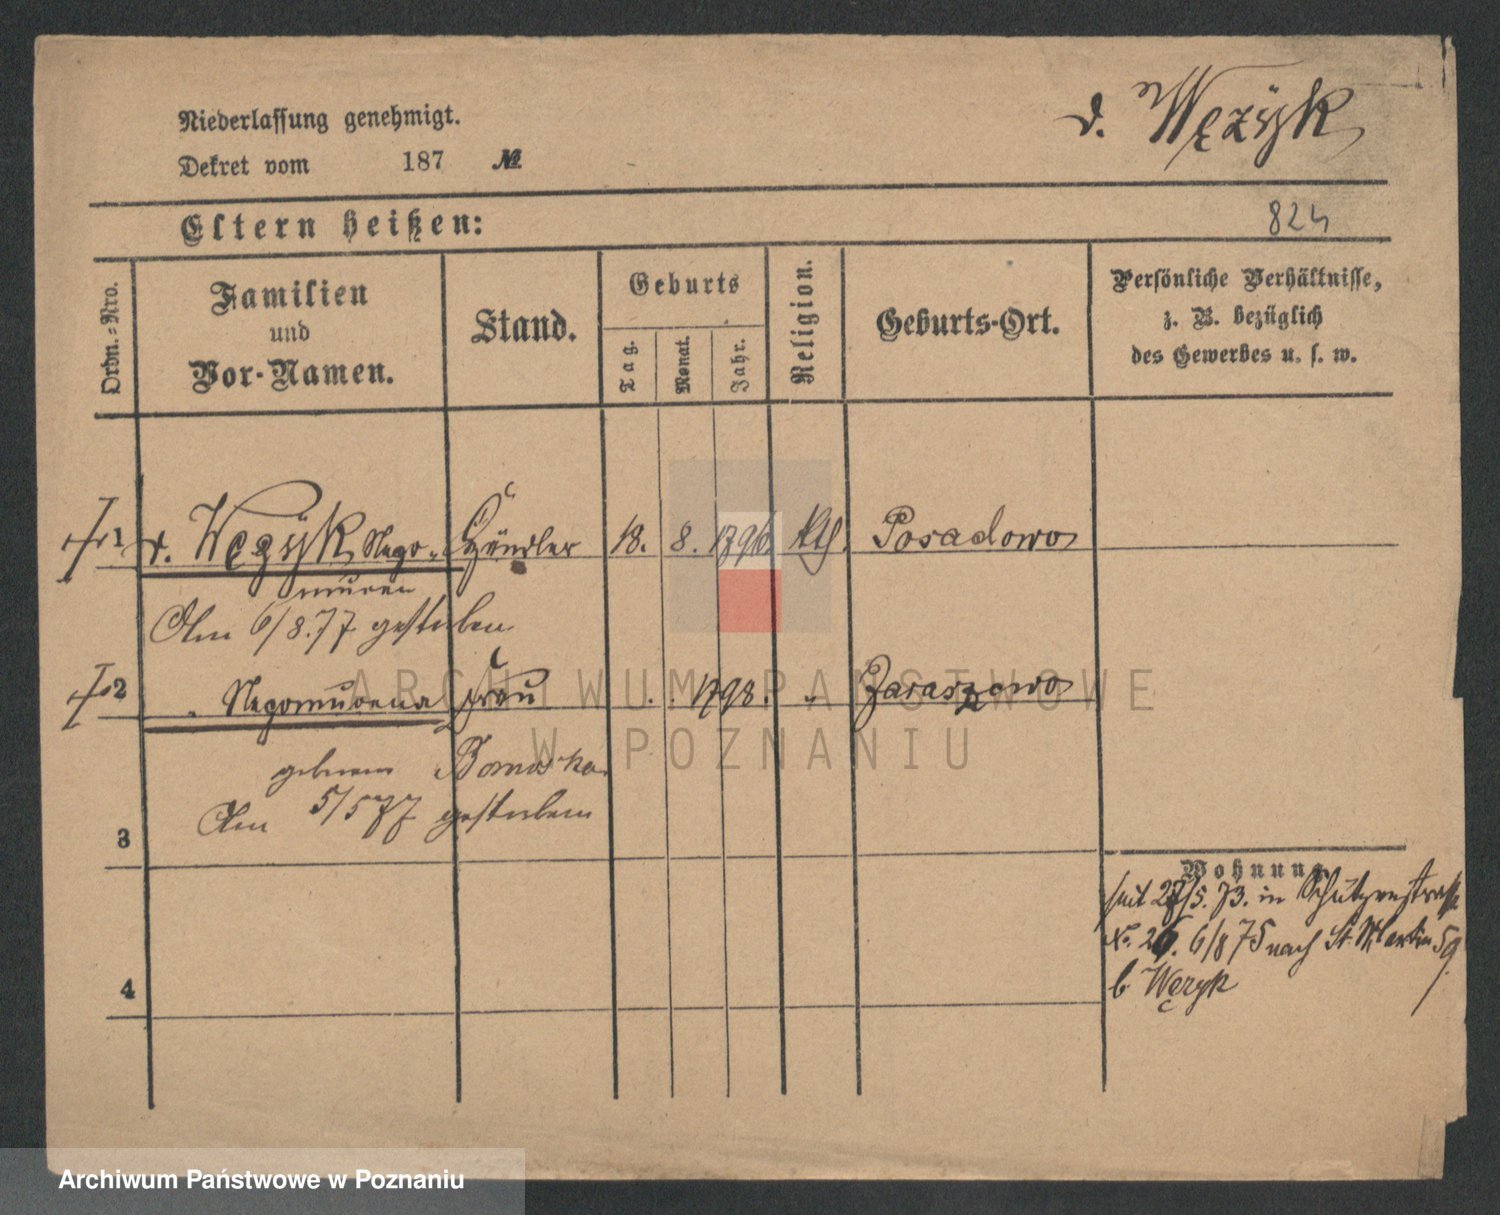 Niederlassung genehmigt.
v. Węzÿk
Dekret vom 187 №
Eltern heißen:
824
Ordn.-Nro.
Familien
und
Vor-Namen.
Stand.
Geburts
Tag.
Monat.
Jahr.
Religion.
Geburts-Ort.
Persönliche Verhältnisse,
z. B. bezüglich
des Gewerbes u. s. w.
1 v. Węzÿk Nepo- Händler 18. 8. 1796 kth. Posadowo
mucen
Am 6/8.77 gestorben
2 Nepomucena Frau 1798. " Zaraszowo
geborene
Am 5/5 77 gestorben
3
Wohnung
seit 27/5. 73. in Schützenstraße
No. 26. 6/8 75 nach St. Martin 59
b. Węzyk
4
ARCHIWUM PAŃSTWOWE
W POZNANIU
Archiwum Państwowe w Poznaniu